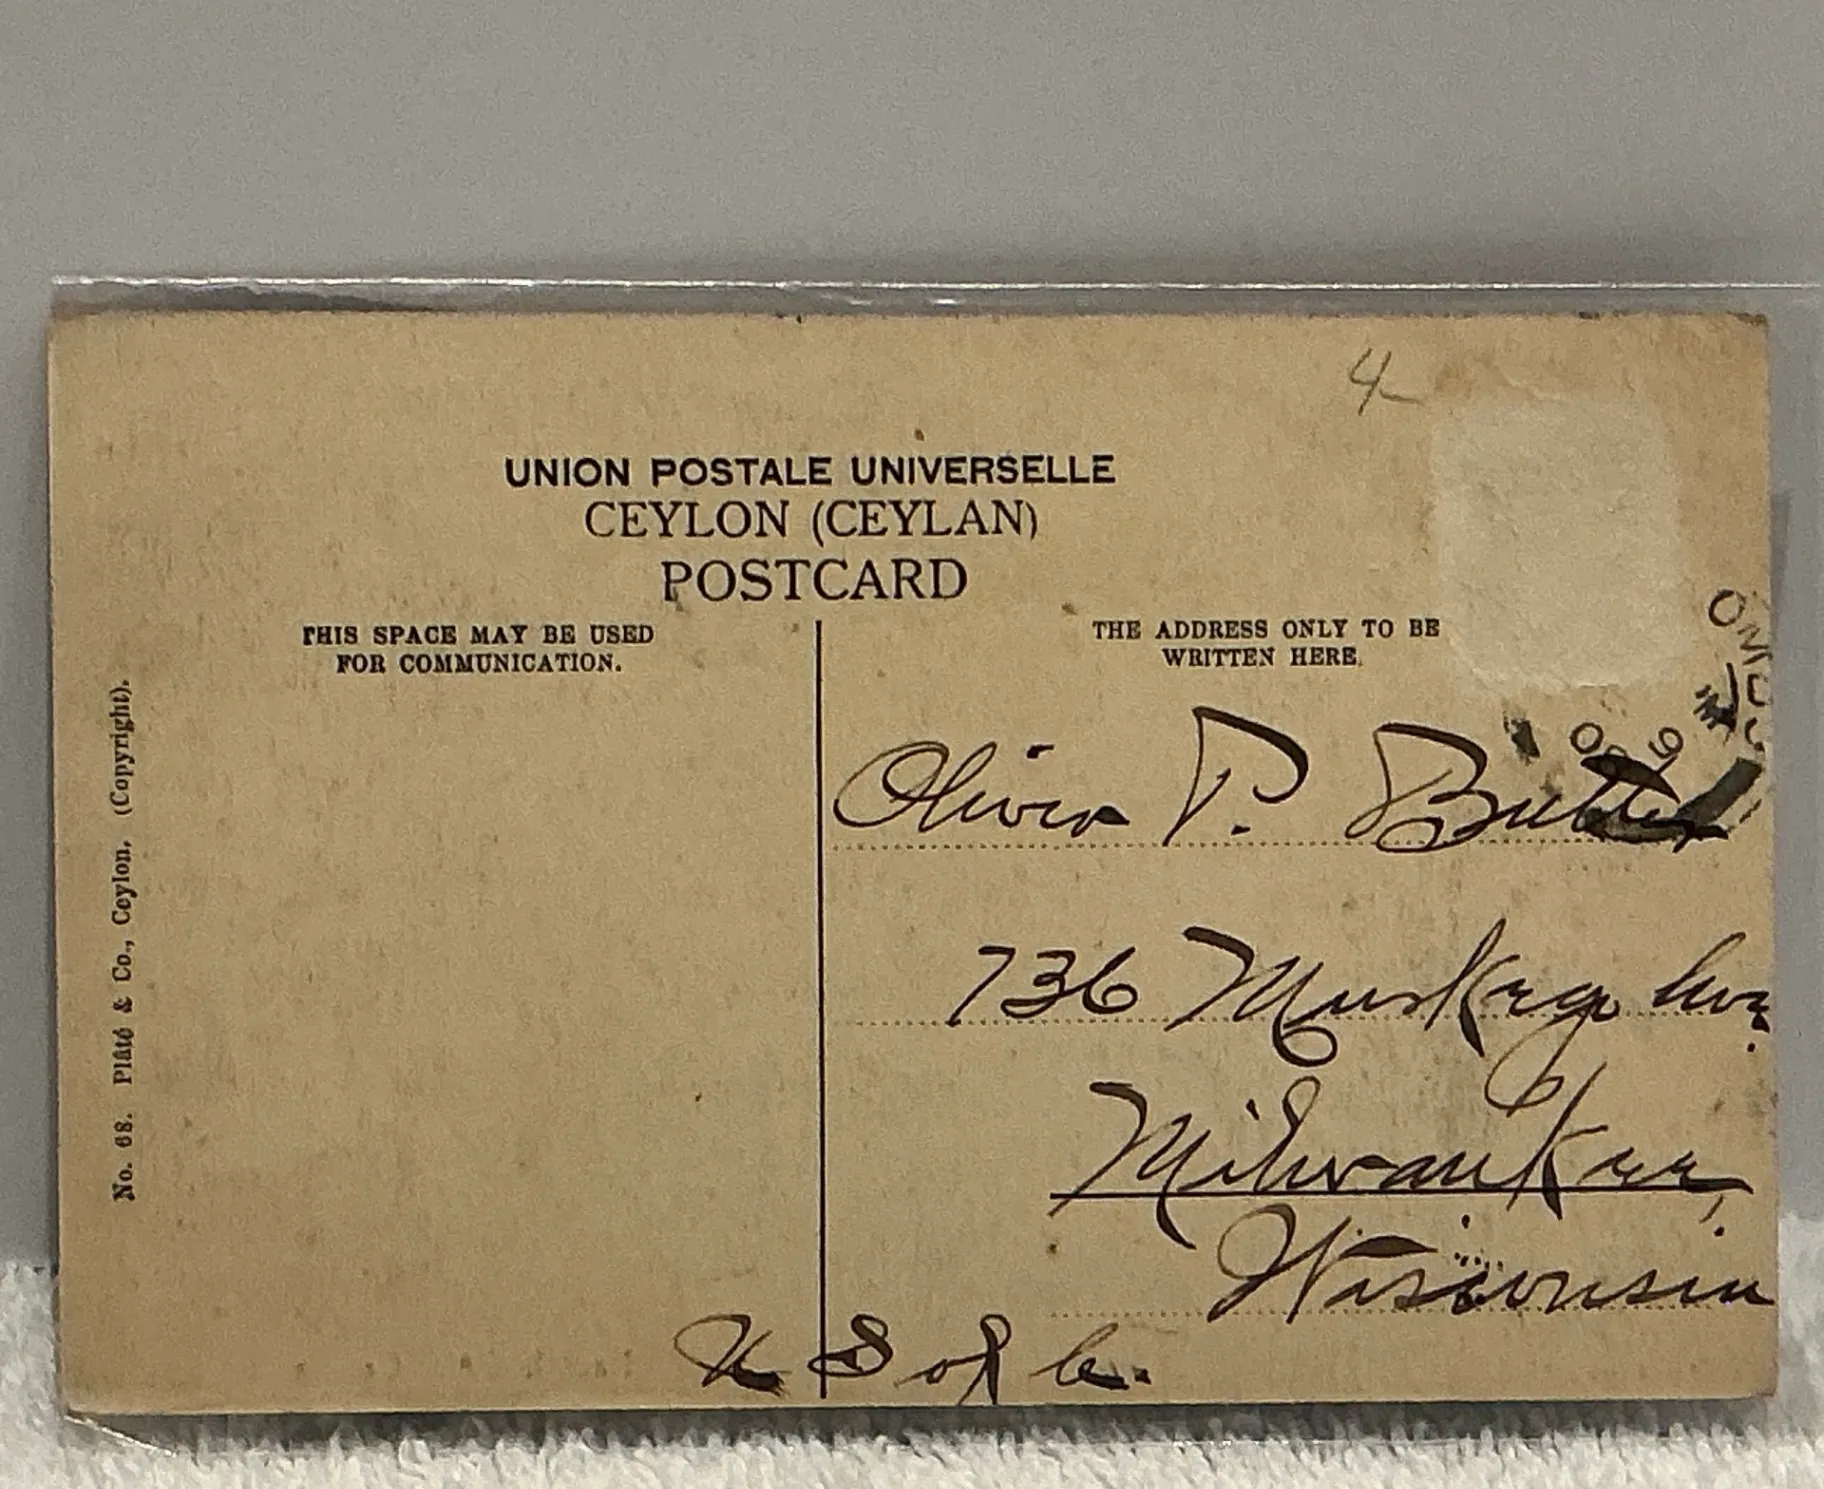 4
UNION POSTALE UNIVERSELLE
CEYLON (CEYLAN)
POSTCARD
THIS SPACE MAY BE USED
FOR COMMUNICATION.
THE ADDRESS ONLY TO BE
WRITTEN HERE.
No. 68. Plâté & Co., Ceylon. (Copyright).
P.
736 Muskego Ave.
Milwaukee,
Wisconsin
U S of A.